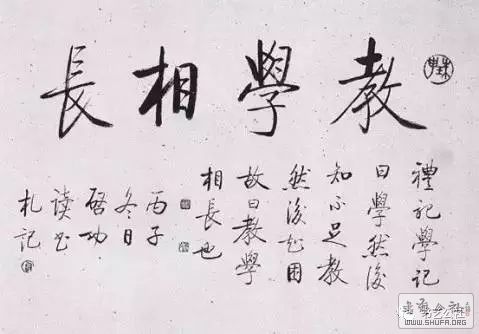 教學相長
禮記學記
曰學然後
知不足教
然後知困
故曰教學
相長也
丙子
冬日
啓功
读书
札記
書藝公社
WWW.SHUFA.ORG